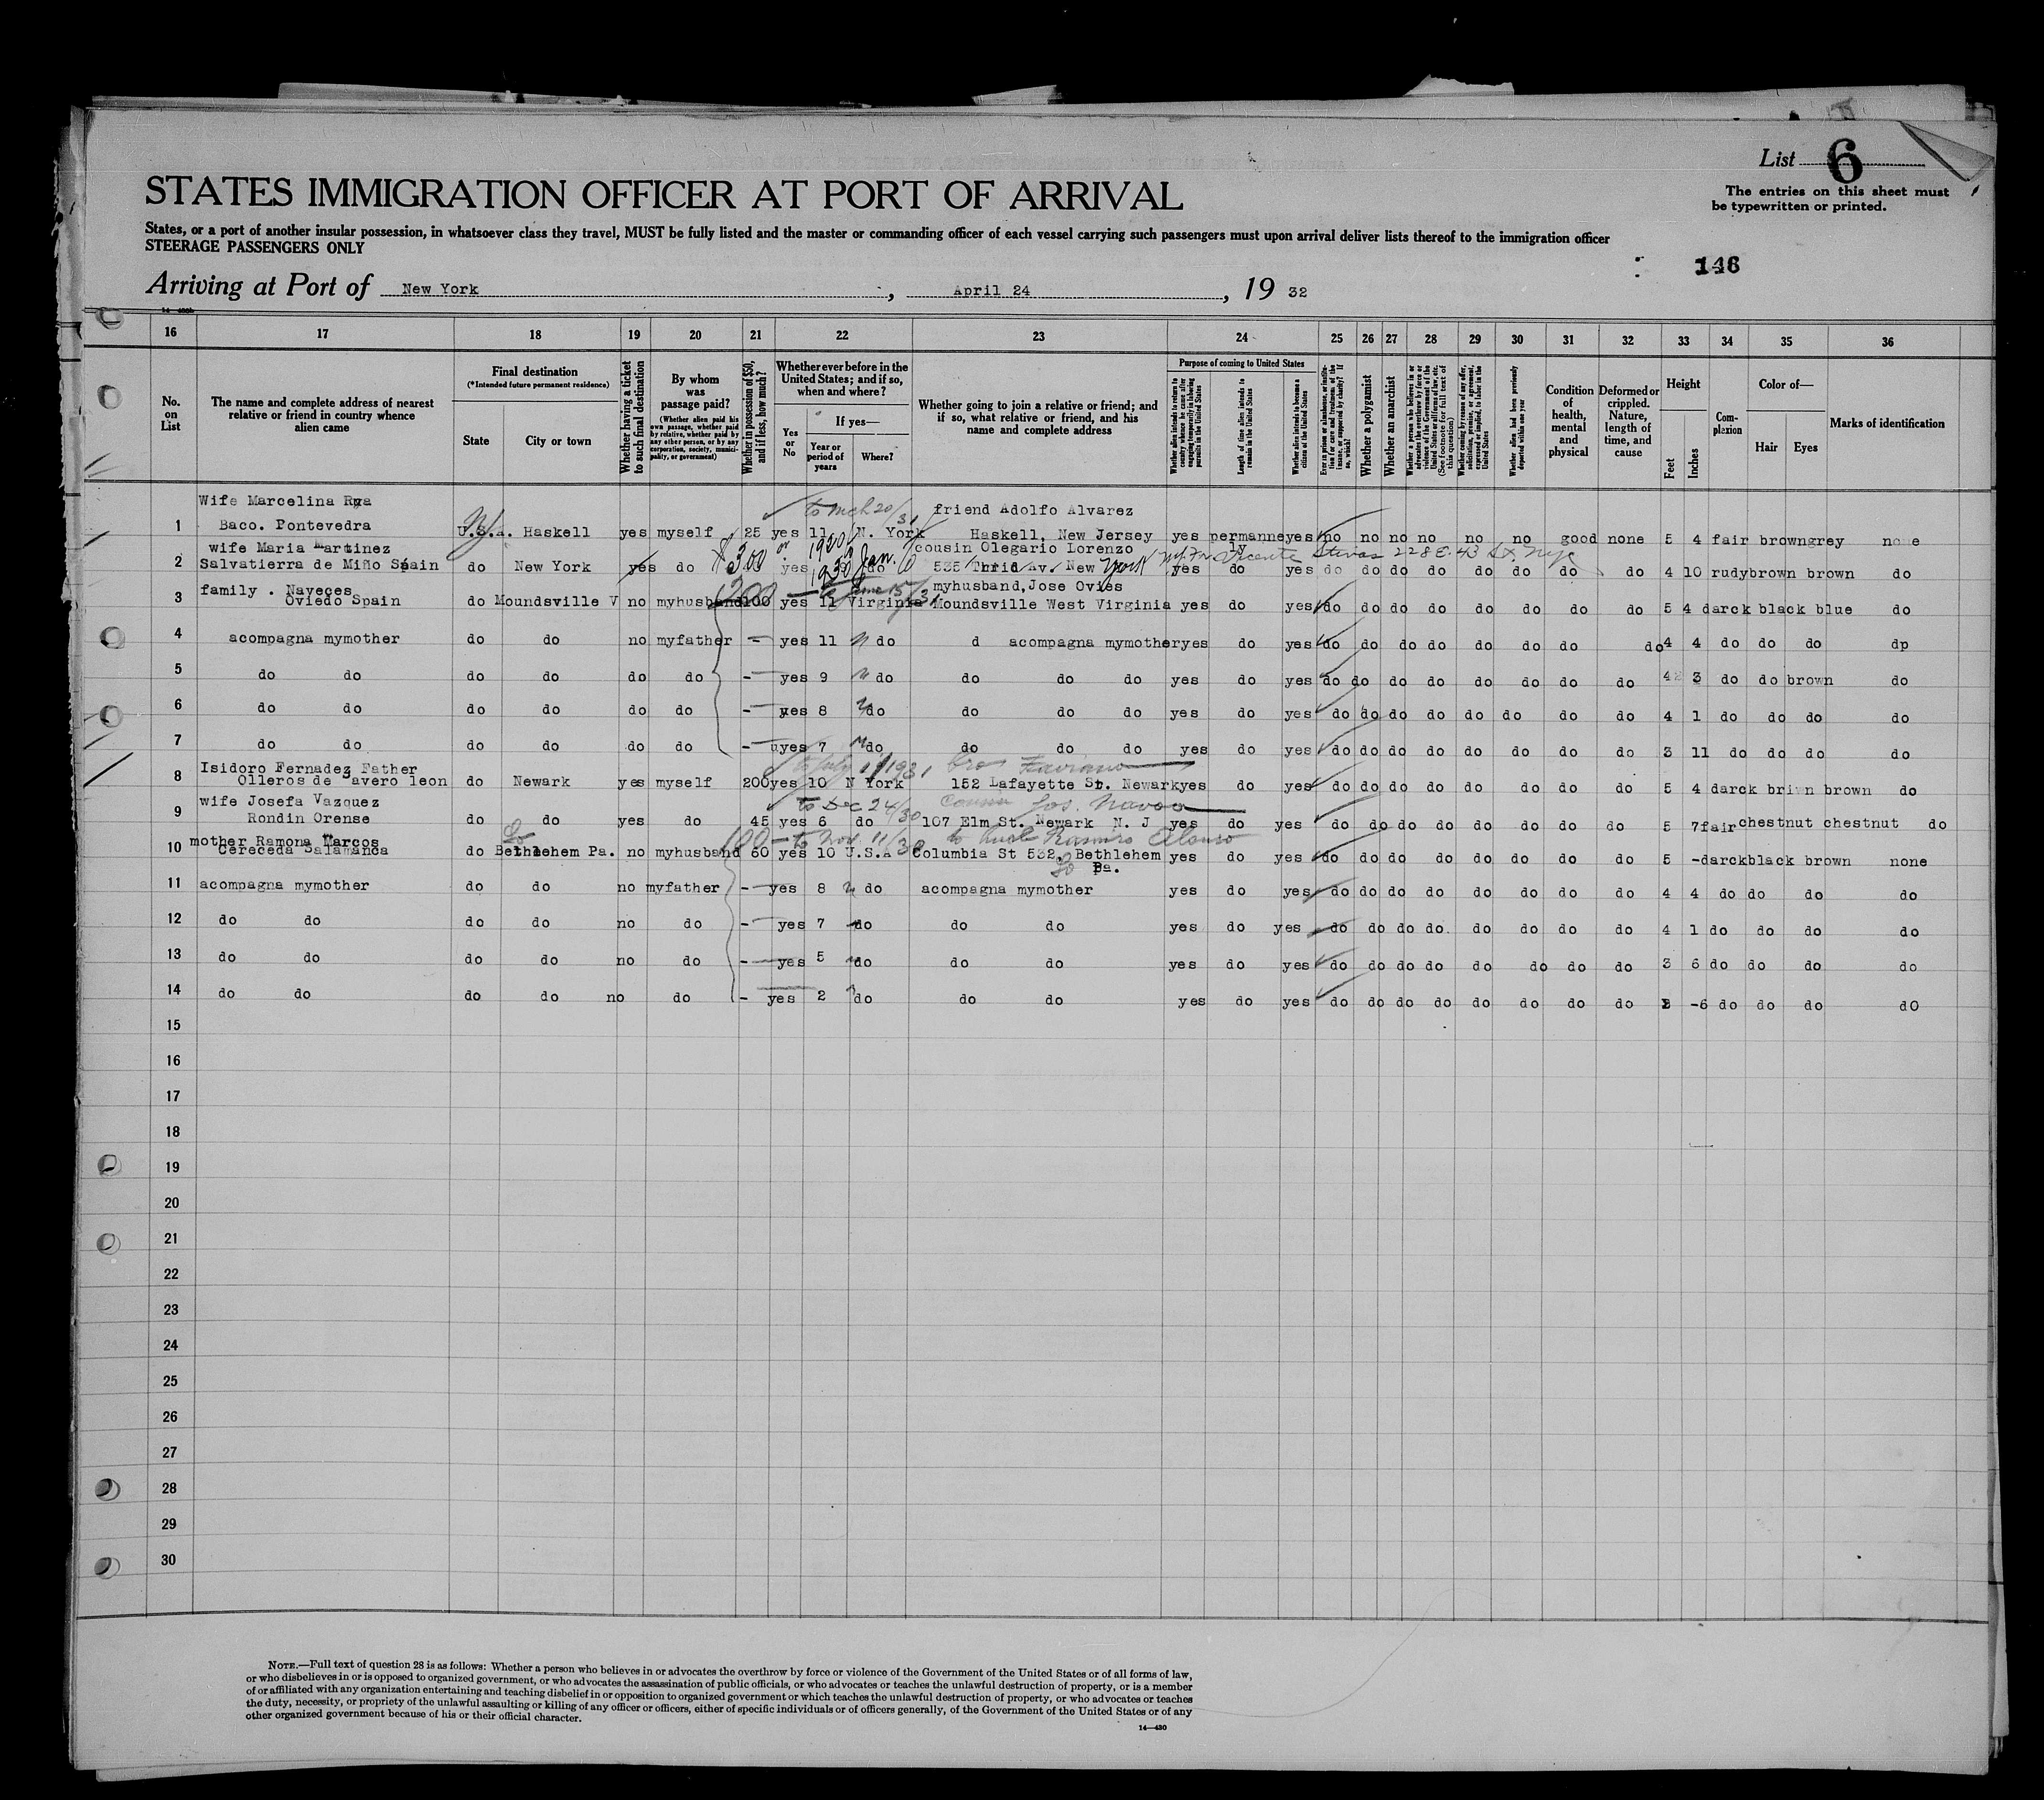 List 6
The entries on this sheet must
be typewritten or printed.
STATES IMMIGRATION OFFICER AT PORT OF ARRIVAL
States, or a port of another insular possession, in whatsoever class they travel, MUST be fully listed and the master or commanding officer of each vessel carrying such passengers must upon arrival deliver lists thereof to the immigration officer
STEERAGE PASSENGERS ONLY
146
Arriving at Port of New York, April 24, 19 32
16 17 18 19 20 21 22 23 24 25 26 27 28 29 30 31 32 33 34 35 36
No. on List
The name and complete address of nearest relative or friend in country whence alien came
Final destination
(*Intended future permanent residence)
State
City or town
Whether having a ticket to such final destination
By whom was passage paid?
(Whether alien paid his own passage, whether paid by relative, whether paid by any other person, or by any corporation, society, municipality, or government)
Whether in possession of $50, and if less, how much?
Whether ever before in the United States; and if so, when and where?
Yes or No
If yes—
Year or period of years
Where?
Whether going to join a relative or friend; and if so, what relative or friend, and his name and complete address
Purpose of coming to United States
Whether alien intends to return to country whence he came after engaging temporarily in laboring pursuits in the United States
Length of time alien intends to remain in the United States
Whether alien intends to become a citizen of the United States
Ever in prison or almshouse, or institution for care and treatment of the insane, or supported by charity? If so, which?
Whether a polygamist
Whether an anarchist
Whether a person who believes in or advocates the overthrow by force or violence of the Government of the United States or all forms of law, etc. (See footnote for full text of this question)
Whether coming by reason of any offer, solicitation, promise, or agreement, expressed or implied, to labor in the United States
Whether alien had been previously deported within one year
Condition of health, mental and physical
Deformed or crippled. Nature, length of time, and cause
Height
Feet
Inches
Complexion
Color of—
Hair
Eyes
Marks of identification
Wife Marcelina Rya to Mch 20/31 friend Adolfo Alvarez
1 Baco. Pontevedra U.S.A. Haskell yes myself 25 yes 11 N. York Haskell, New Jersey yes permanne yes no no no no no no good none 5 4 fair brown grey none
wife Maria Martinez 1920 cousin Olegario Lorenzo ly
2 Salvatierra de Miño Spain do New York yes do $300 yes 1930 Jan. do 535 Thrid Av. New York Vicente 228 E. 43 St. NYC yes do yes do do do do do do do do 4 10 rudy brown brown do
family . Nayeces 200 June 15/31 myhusband, Jose Ovies
3 Oviedo Spain do Moundsville V no myhusband 100 yes 11 Virginia Moundsville West Virginia yes do yes do do do do do do do do 5 4 darck black blue do
4 acompagna mymother do do no myfather - yes 11 do d acompagna mymother yes do yes do do do do do do do do 4 4 do do do dp
5 do do do do do do - yes 9 do do do do yes do yes do do do do do do do do 4 3 do do brown do
6 do do do do do do - yes 8 do do do do yes do yes do do do do do do do do 4 1 do do do do
7 do do do do do do - yes 7 do do do do yes do yes do do do do do do do do 3 11 do do do do
Isidoro Fernadez Father to July 1931 bro
8 Olleros de Savero leon do Newark yes myself 200 yes 10 N York 152 Lafayette St. Newark yes do yes do do do do do do do do 5 4 darck brown brown do
wife Josefa Vazquez to Dec 24/30 Cousin Jos. Navoa
9 Rondin Orense do do yes do 45 yes 6 do 107 Elm St. Newark N. J yes do yes do do do do do do do do 5 7 fair chestnut chestnut do
mother Ramona Marcos 100 - to Nov. 11/30 to husb Ramiro Alonso
10 Cereceda Salamanca do Bethlehem Pa. no myhusband 60 yes 10 U.S.A Columbia St 532, Bethlehem yes do yes do do do do do do do do 5 - darck black brown none
Pa.
11 acompagna mymother do do no myfather - yes 8 do acompagna mymother yes do yes do do do do do do do do 4 4 do do do do
12 do do do do no do - yes 7 do do do yes do yes do do do do do do do do 4 1 do do do do
13 do do do do no do - yes 5 do do do yes do yes do do do do do do do do 3 6 do do do do
14 do do do do no do - yes 2 do do do yes do yes do do do do do do do do -6 do do do dO
15
16
17
18
19
20
21
22
23
24
25
26
27
28
29
30
NOTE.—Full text of question 28 is as follows: Whether a person who believes in or advocates the overthrow by force or violence of the Government of the United States or of all forms of law,
or who disbelieves in or is opposed to organized government, or who advocates the assassination of public officials, or who advocates or teaches the unlawful destruction of property, or is a member
of or affiliated with any organization entertaining and teaching disbelief in or opposition to organized government or which teaches the unlawful destruction of property, or who advocates or teaches
the duty, necessity, or propriety of the unlawful assaulting or killing of any officer or officers, either of specific individuals or of officers generally, of the Government of the United States or of any
other organized government because of his or their official character.
14—430